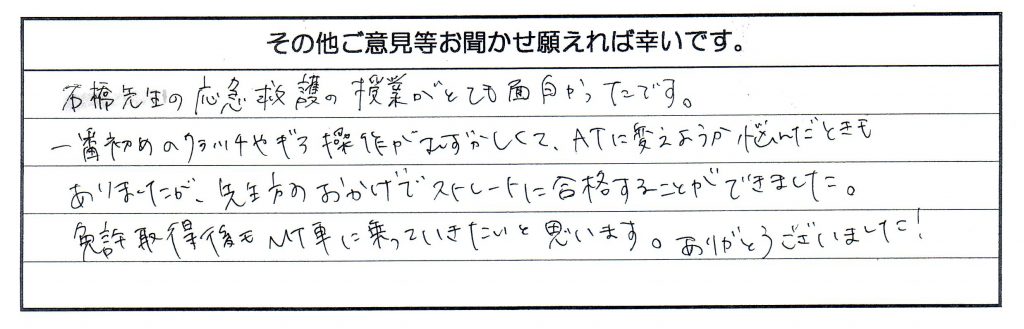 その他ご意見等お聞かせ願えれば幸いです。
石橋先生の応急救護の授業がとても面白かったです。
一番初めのクラッチやギア操作がむずかしくて、ATに変えようか悩んだときも
ありましたが、先生方のおかげでストレートに合格することができました。
免許取得後もMT車に乗っていきたいと思います。ありがとうございました！